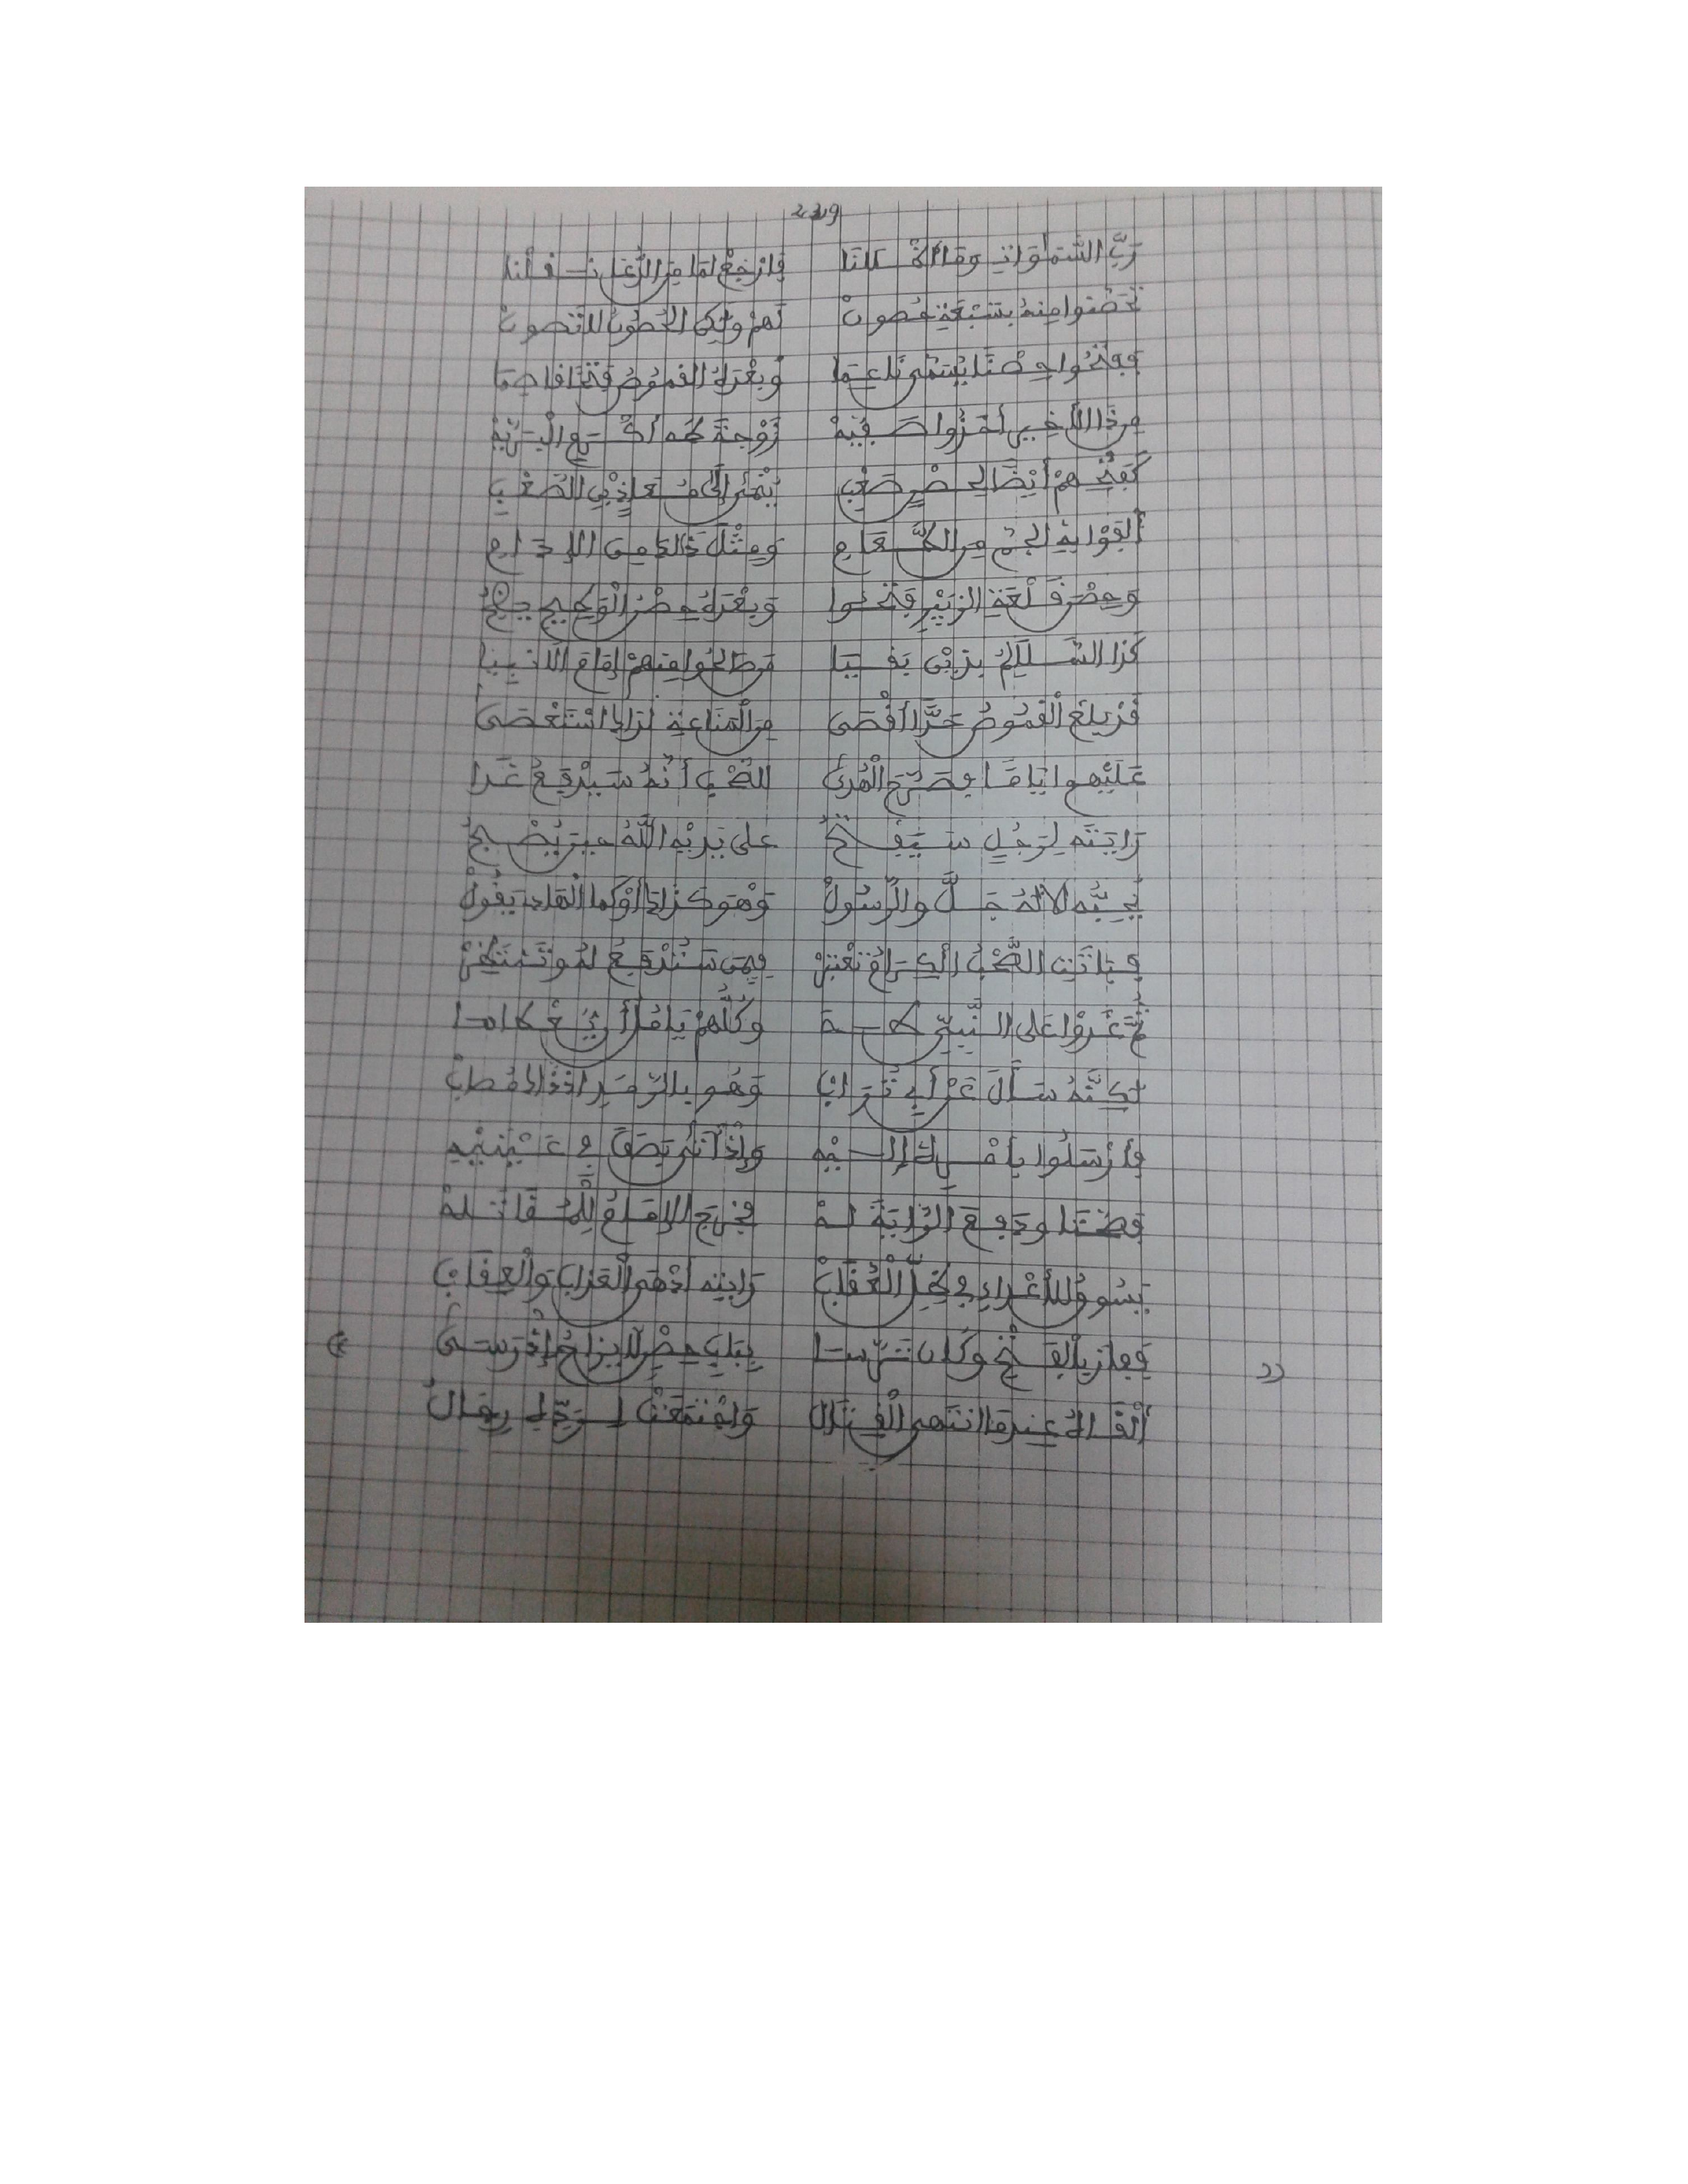 239
رَبِّ السَّمٰوَاتِ وَمَا أَظْلَلْنَا فَارْجِعْ لِمَا مِنَ الدُّعَا نَقَلْنَا
تَحَصَّنُوا مِنْهُ بِسَبْعَةِ حُصُونْ لَهُمْ وَلَكِنِ الْحُصُونُ لَا تَصُونْ
فَفَتَحُوا حِصْنًا يُسَمَّى نَاعِمَا وَبَعْدَهُ الْقَمُوصُ فَتْحًا
مِنْ ذَا الْأَخِيرِ أَخَذُوا صَفِيَّهْ زَوْجَةَ طٰهَ أَكْرَمِ الْبَرِيَّهْ
كَفَتْحِهِمْ أَيْضًا لِحِصْنٍ صَعْبِ يُنْمَى إِلَى مُعَاذٍ بْنِ الصَّعْبِ
أَلْفَوْا بِهِ الْجَمَّ مِنَ الطَّعَامِ وَمِثْلَ ذَاكَ مِنَ الْإِدَامِ
وَحِصْنَ قَلْعَةِ الزُّبَيْرِ فَتَحُوا وَبَعْدَهُ حِصْنُ الْوَطِيحِ
كَذَا السَّلَالِمُ بِذَيْنِ بَقِيَا مَنْ صَالَحُوا مِنْهُمْ إِمَامَ الْأَنْبِيَا
قَدْ بَلَغَ الْقَمُوصُ حَدًّا أَقْصَى مِنَ الْمَنَاعَةِ لِذَاكَ اسْتَعْصَى
عَلَيْهِمُ أَيَّامًا وَصَرَّحَ الْهُدَى لِلصَّحْبِ أَنَّهُ سَيَدْفَعُ غَدَا
رَايَتَهُ لِرَجُلٍ سَيَفْتَحُ عَلَى يَدَيْهِ اللهُ حِينَ يُصْبِحُ
يُحِبُّهُ الْإِلٰهُ جَلَّ وَالرَّسُولْ وَهْوَ كَذَاكَ أَوْ كَمَا الْهَادِي يَقُولْ
فَبَاتَتِ الصَّحْبُ الْكِرَامُ تَعْتَبِرْ فِيمَنْ سَتُدْفَعُ لَهُ وَتَنْتَظِرْ
ثُمَّ غَدَوْا عَلَى النَّبِيِّ طٰهَ وَكُلُّهُمْ يَأْمُلُ أَنْ يُعْطَاهَا
لَكِنَّهُ سَأَلَ عَنْ أَبِي تُرَابْ وَهُوَ بِالرَّمَدِ إِذْ ذَاكَ مُصَابْ
فَأَرْسَلُوا بِأَمْرِهِ إِلَيْهِ وَإِذْ أَتَى بَصَقَ فِي عَيْنَيْهِ
فَصَحَّتَا وَدَفَعَ الرَّايَةَ لَهْ فَخَرَجَ الْإِمَامُ لِلْمُقَاتَلَهْ
يَسُوقُ لِلْأَعْدَاءِ فِي ظِلِّ الْعُقَابْ رَايَتِهِ أَدْهَى الْعَذَابِ وَالْعِقَابْ
فَفَازَ بِالْفَتْحِ وَكَانَ تَرَّسَا بِبَابِ حِصْنٍ لَا يُزَاحُ إِذْ رَسَى
أَلْقَاهُ عِنْدَمَا انْتَهَى الْقِتَالُ وَاجْتَمَعَتْ لِرَدِّهِ رِجَالُ